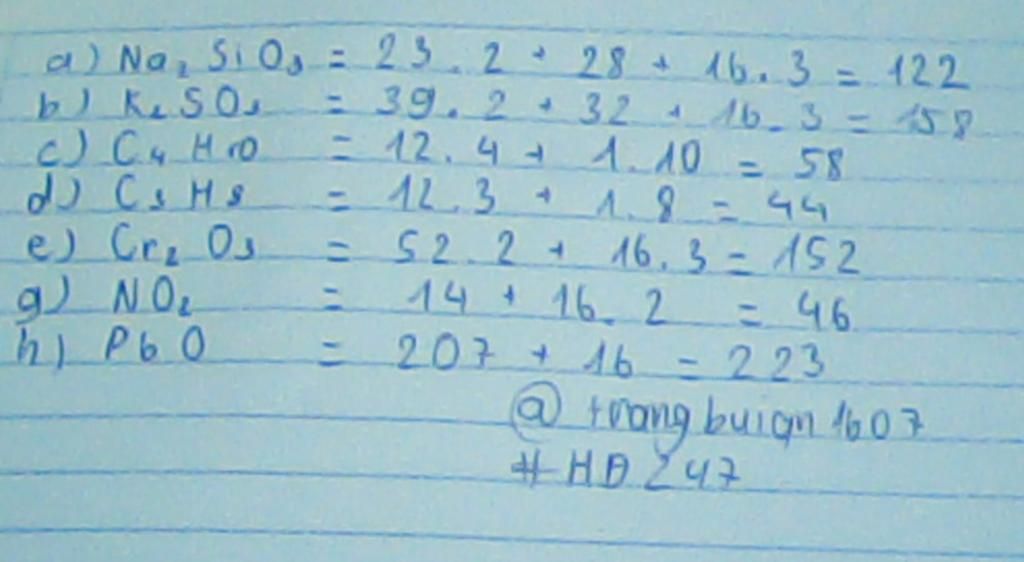 a) Na₂SiO₃ = 23.2 + 28 + 16.3 = 122
b) K₂SO₃ = 39.2 + 32 + 16.3 = 158
c) C₄H₁₀ = 12.4 + 1.10 = 58
d) C₃H₈ = 12.3 + 1.8 = 44
e) Cr₂O₃ = 52.2 + 16.3 = 152
g) NO₂ = 14 + 16.2 = 46
h) PbO = 207 + 16 = 223
@trangbuiqn1607
#HDZ47